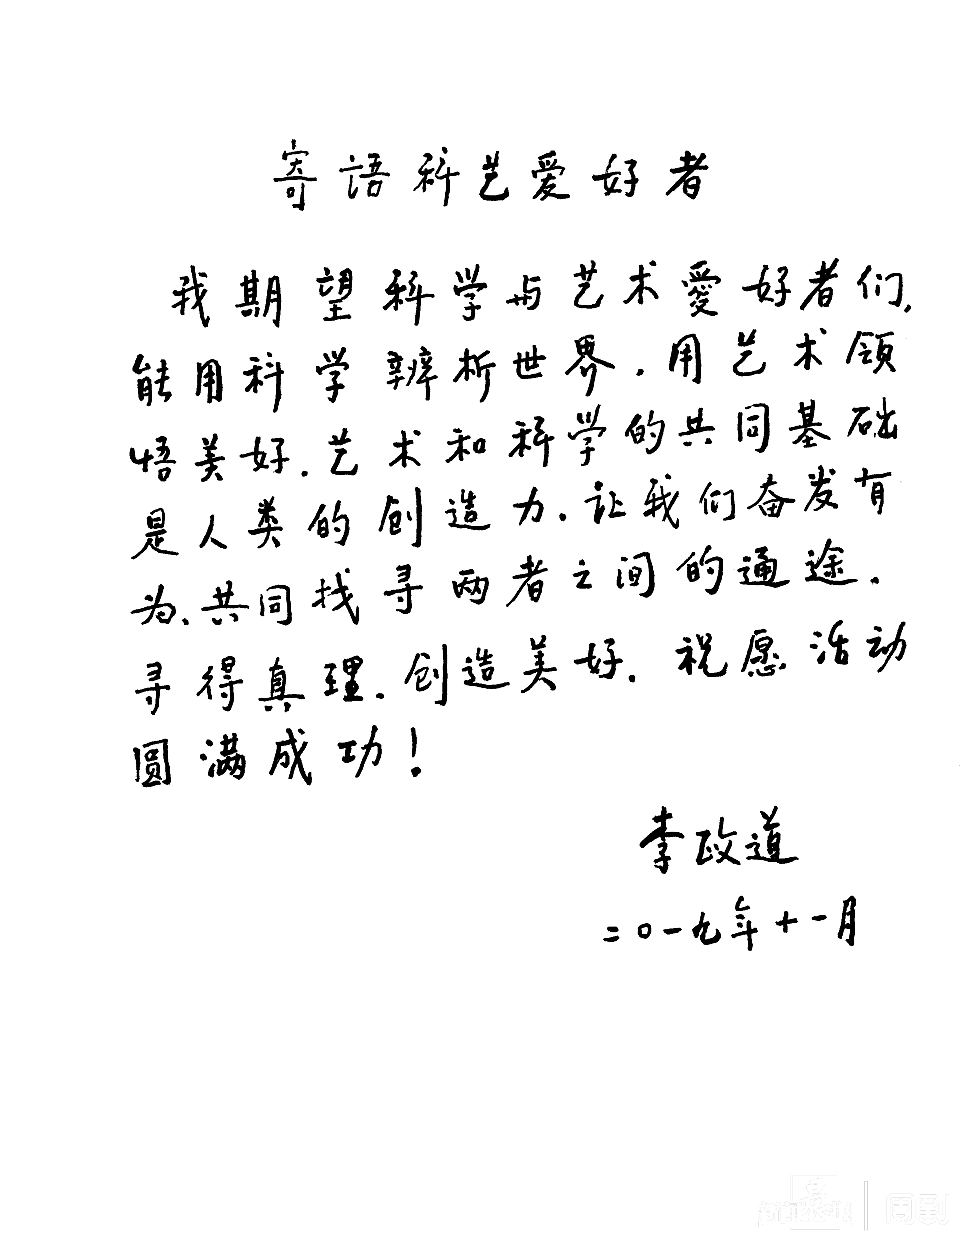 寄语科艺爱好者
我期望科学与艺术愛好者们,
能用科学辨析世界.用艺术领
悟美好.艺术和科学的共同基础
是人类的创造力.让我们奋发有
为、共同找寻两者之间的通途.
寻得真理.创造美好.祝愿活动
圆满成功!
李政道
二〇一九年十一月
周到